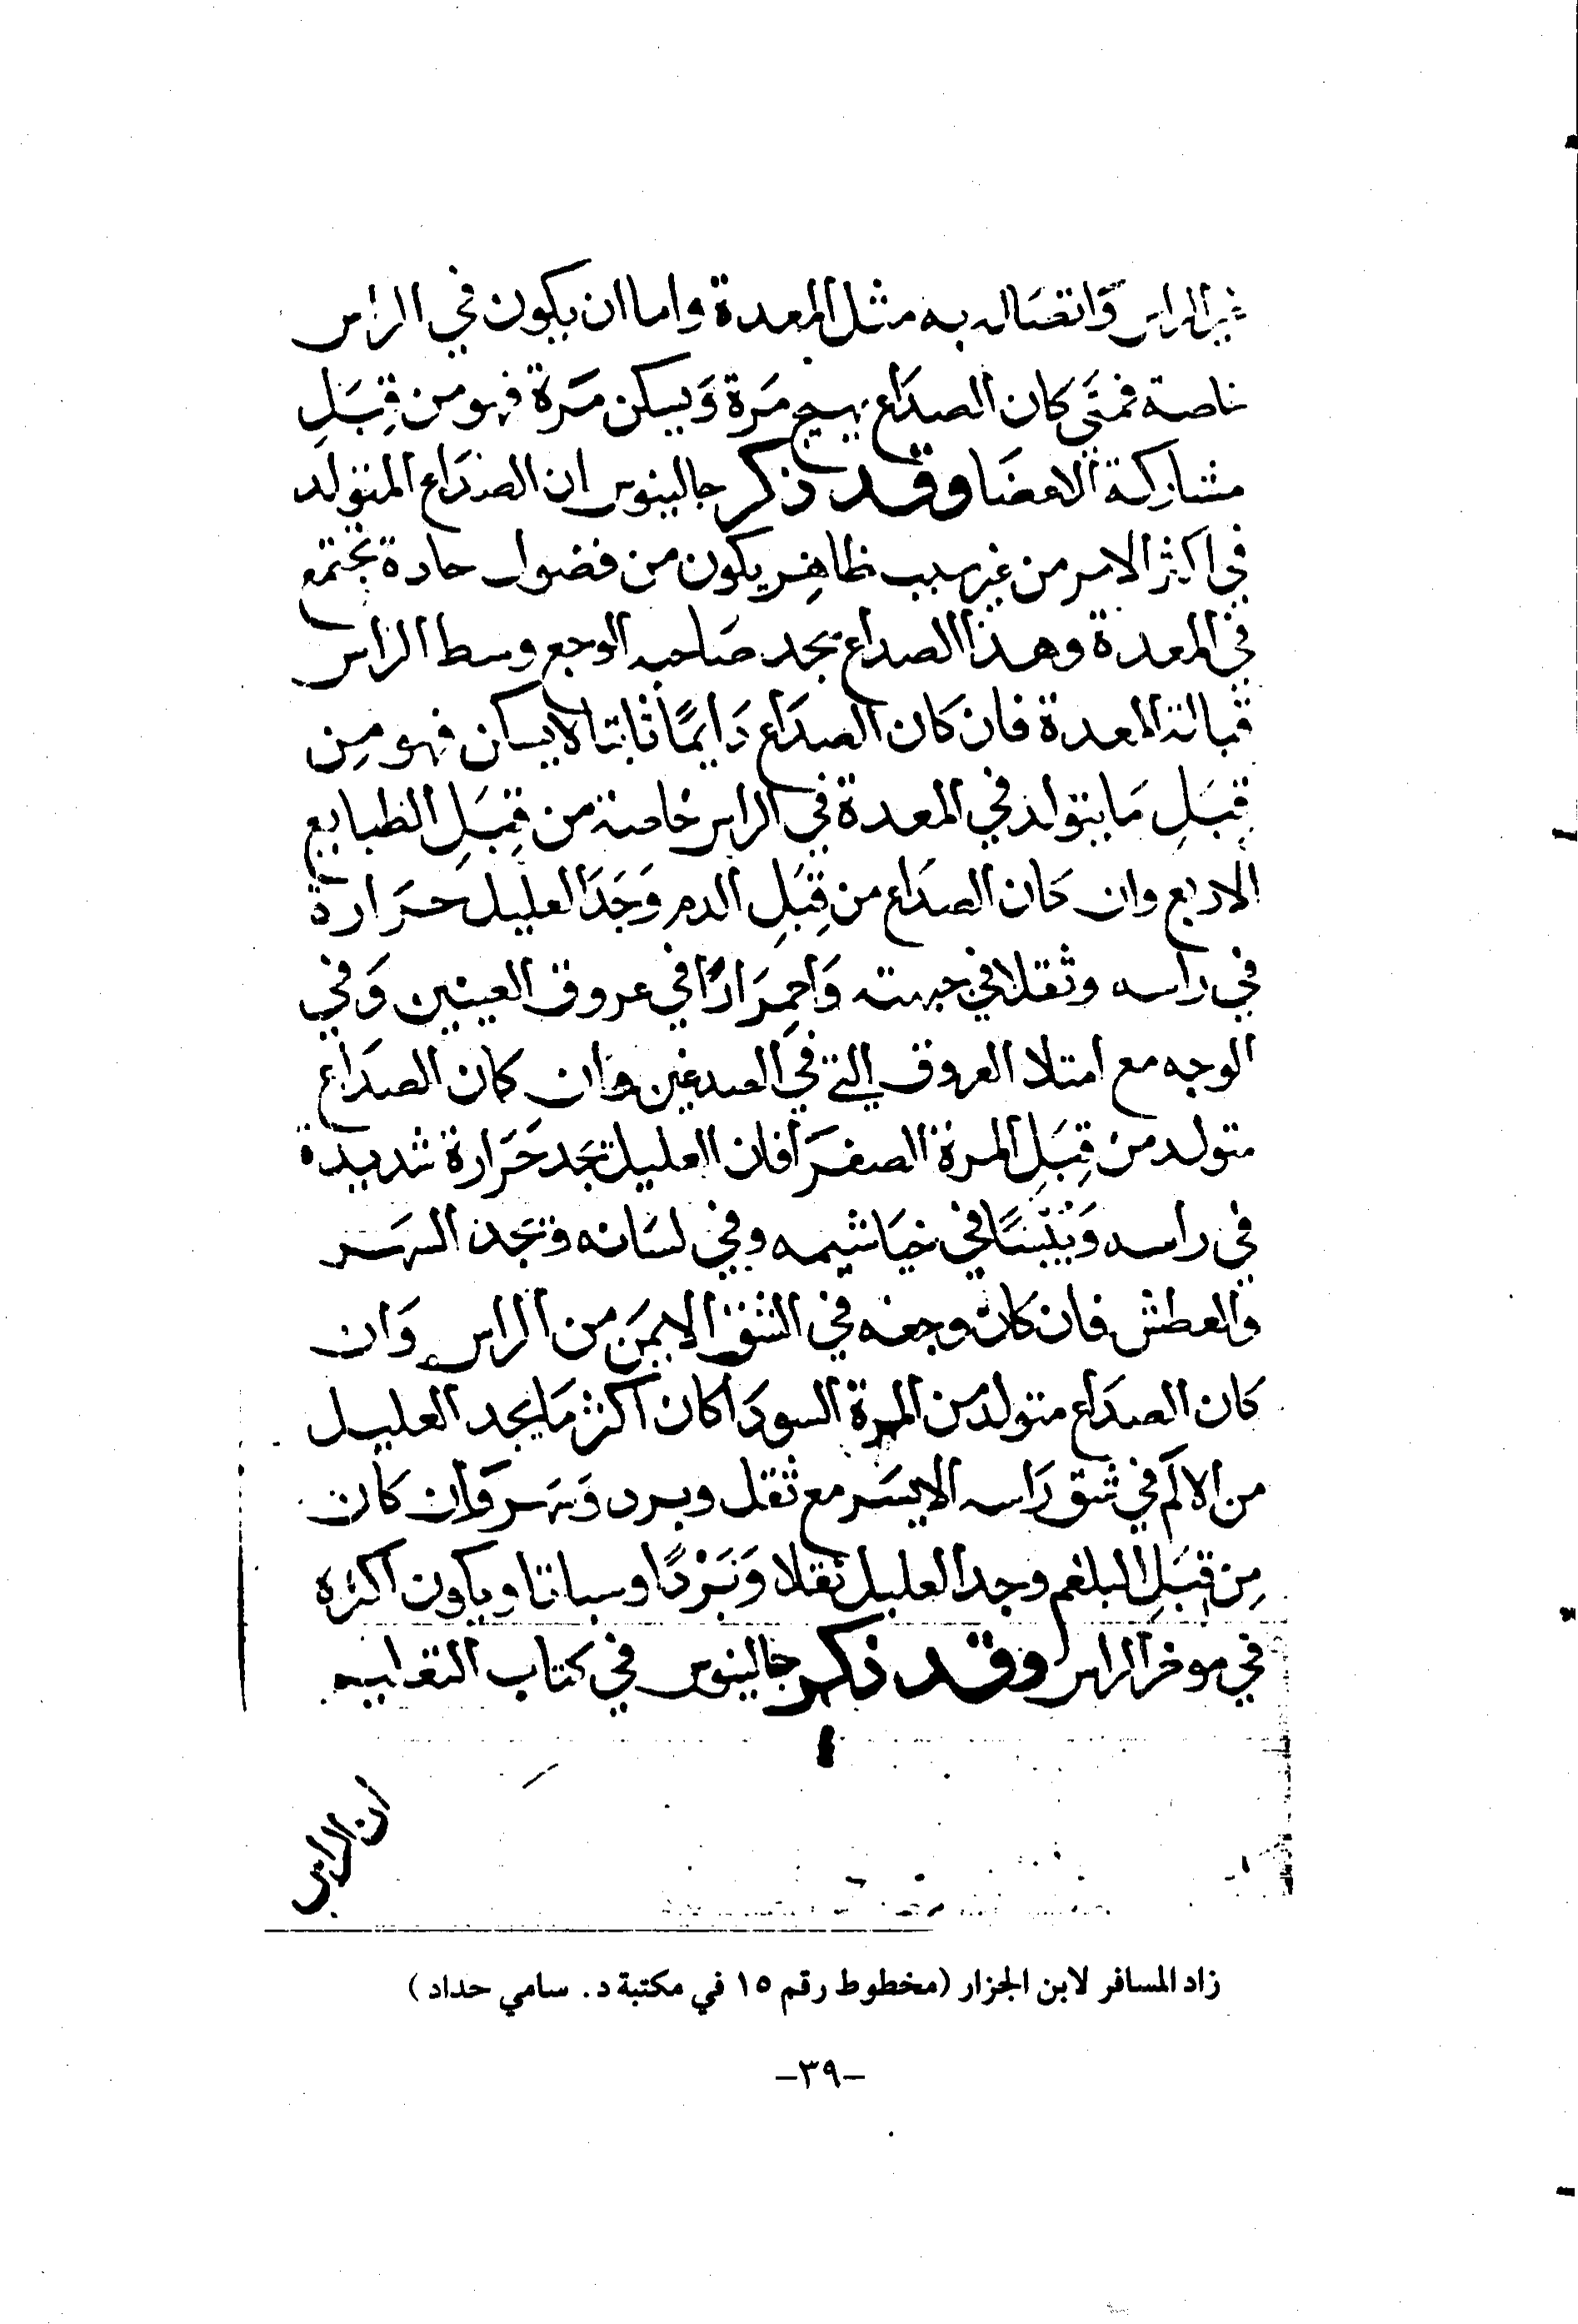 غير الراس وَاتصَاله به مثل المعدة واما ان يكون في الراس
خاصة فمتَي كان الصدَاع يهيج مَرة وَيسكن مَرة فهو من قِبَلِ
مشاركة الاعضَا وقد ذكر جالينوس ان الصدَاع المتولد
في اكثر الامر من غير سبب ظاهِر يكون من فضول حادة تجتمع
في المعدة وهذا الصداع يجد صَاحبه الوجع وسط الراس
قبالة المعدة فان كان الصدَاع دَايمًا ثابتا لا يسكن فهو مِن
قِبَلِ مَا يتولد في المعدة في الراس خاصة من قِبَلِ الطبايع
الاربع وان كان الصدَاع من قِبَلِ الدم وَجَدَ العليل حَرَارة
في راسه وثقلا في جبهته وَاحمِرَارًا في عروق العينين وَفي
الوجه مع امتلا العروق التي في الصدغين وان كان الصدَاع
متولد من قِبَلِ المرة الصفرَا فان العليل تجَد حَرَارة شديدة
في راسه وَيُبْسًا في خيَاشيمه وفي لسَانه وتجَد السهَر
والعطش فان كان وجعه في الشق الايمَن من الراس وَان
كان الصدَاع متولد من المرة السودَا كان اكثر مَا يجد العليل
من الالَم في شق رَاسه الايسَر مع ثقل وبرد وَسَهر وَان كان
مِن قِبَلِ البلغم وجد العليل ثقلا وَبَرْدًا وسباتا ويكون اكثره
في موخر الراس وقد ذكر جالينوس في كتاب
ان الراس
زاد المسافر لابن الجزار (مخطوط رقم ١٥ في مكتبة د. سامي حداد)
–٣٩–